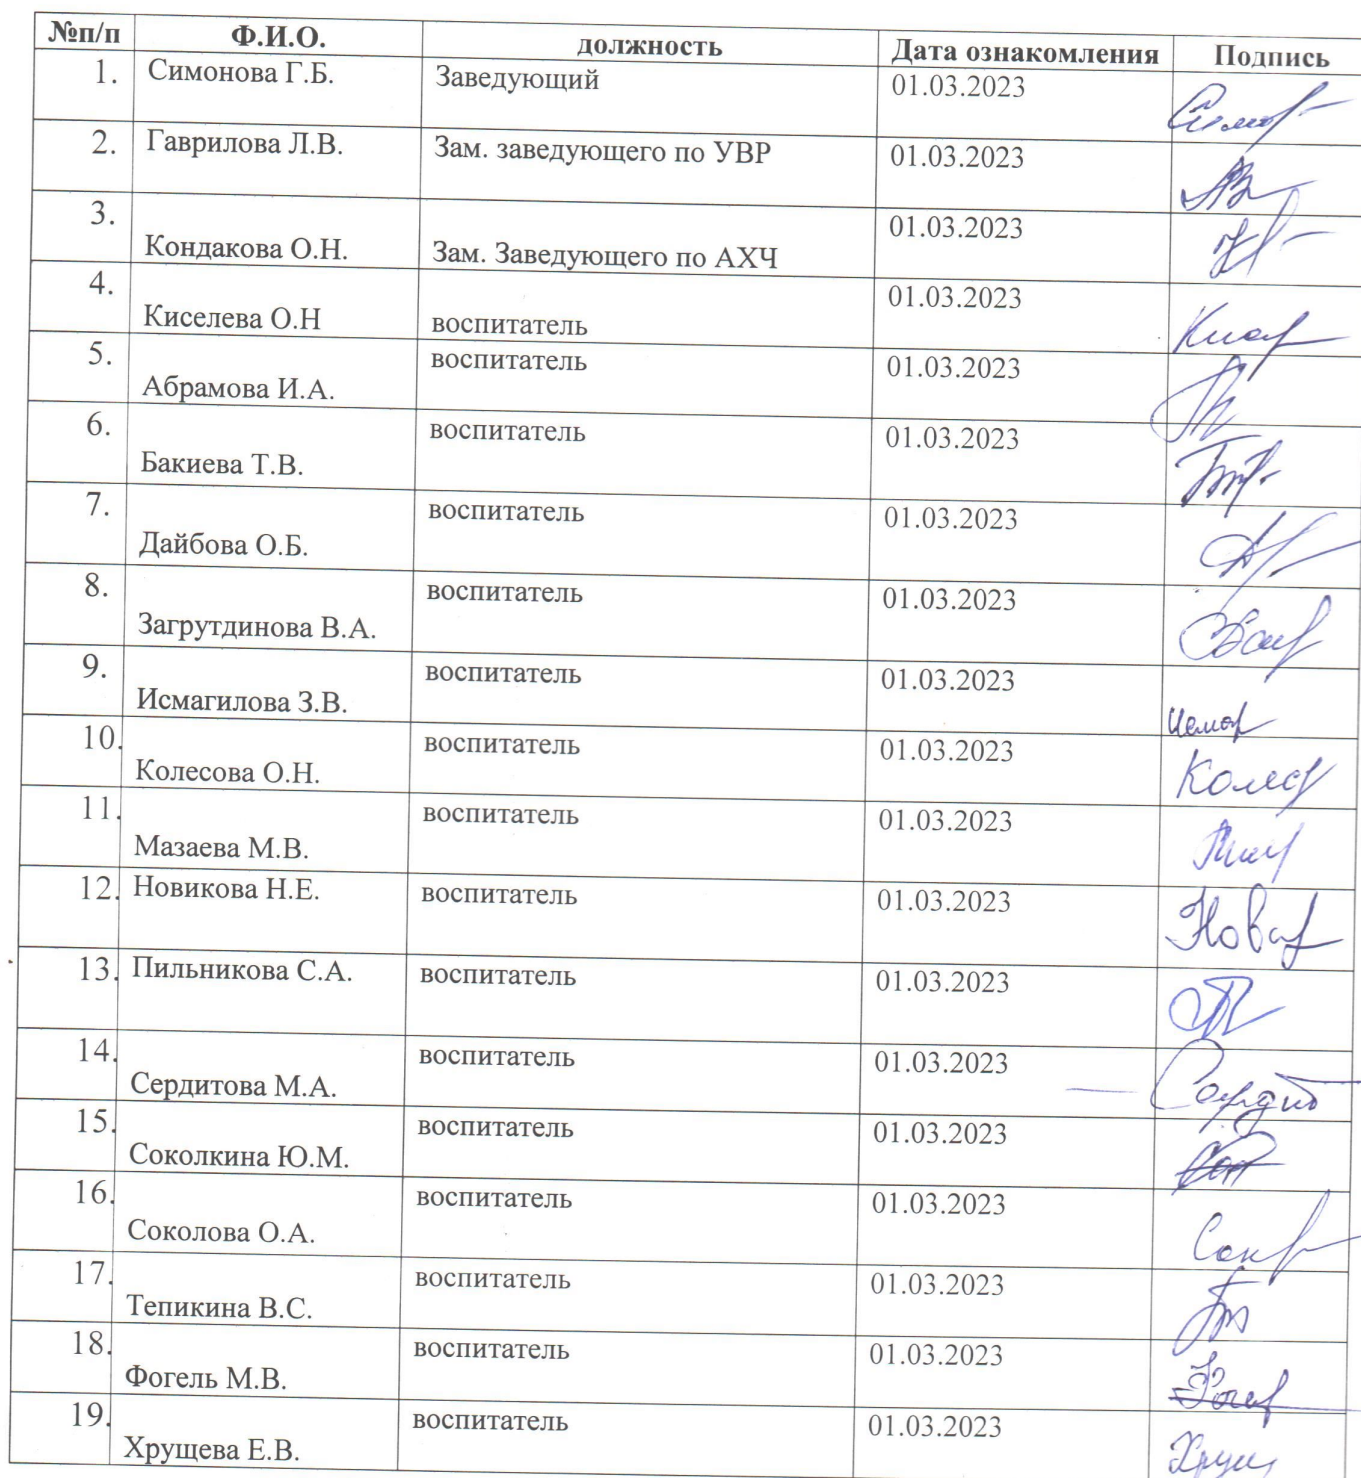 №п/п Ф.И.О. должность Дата ознакомления Подпись
1. Симонова Г.Б. Заведующий 01.03.2023
2. Гаврилова Л.В. Зам. заведующего по УВР 01.03.2023
3. Кондакова О.Н. Зам. Заведующего по АХЧ 01.03.2023
4. Киселева О.Н воспитатель 01.03.2023
5. Абрамова И.А. воспитатель 01.03.2023
6. Бакиева Т.В. воспитатель 01.03.2023
7. Дайбова О.Б. воспитатель 01.03.2023
8. Загрутдинова В.А. воспитатель 01.03.2023
9. Исмагилова З.В. воспитатель 01.03.2023
10. Колесова О.Н. воспитатель 01.03.2023
11. Мазаева М.В. воспитатель 01.03.2023
12. Новикова Н.Е. воспитатель 01.03.2023
13. Пильникова С.А. воспитатель 01.03.2023
14. Сердитова М.А. воспитатель 01.03.2023
15. Соколкина Ю.М. воспитатель 01.03.2023
16. Соколова О.А. воспитатель 01.03.2023
17. Тепикина В.С. воспитатель 01.03.2023
18. Фогель М.В. воспитатель 01.03.2023
19. Хрущева Е.В. воспитатель 01.03.2023